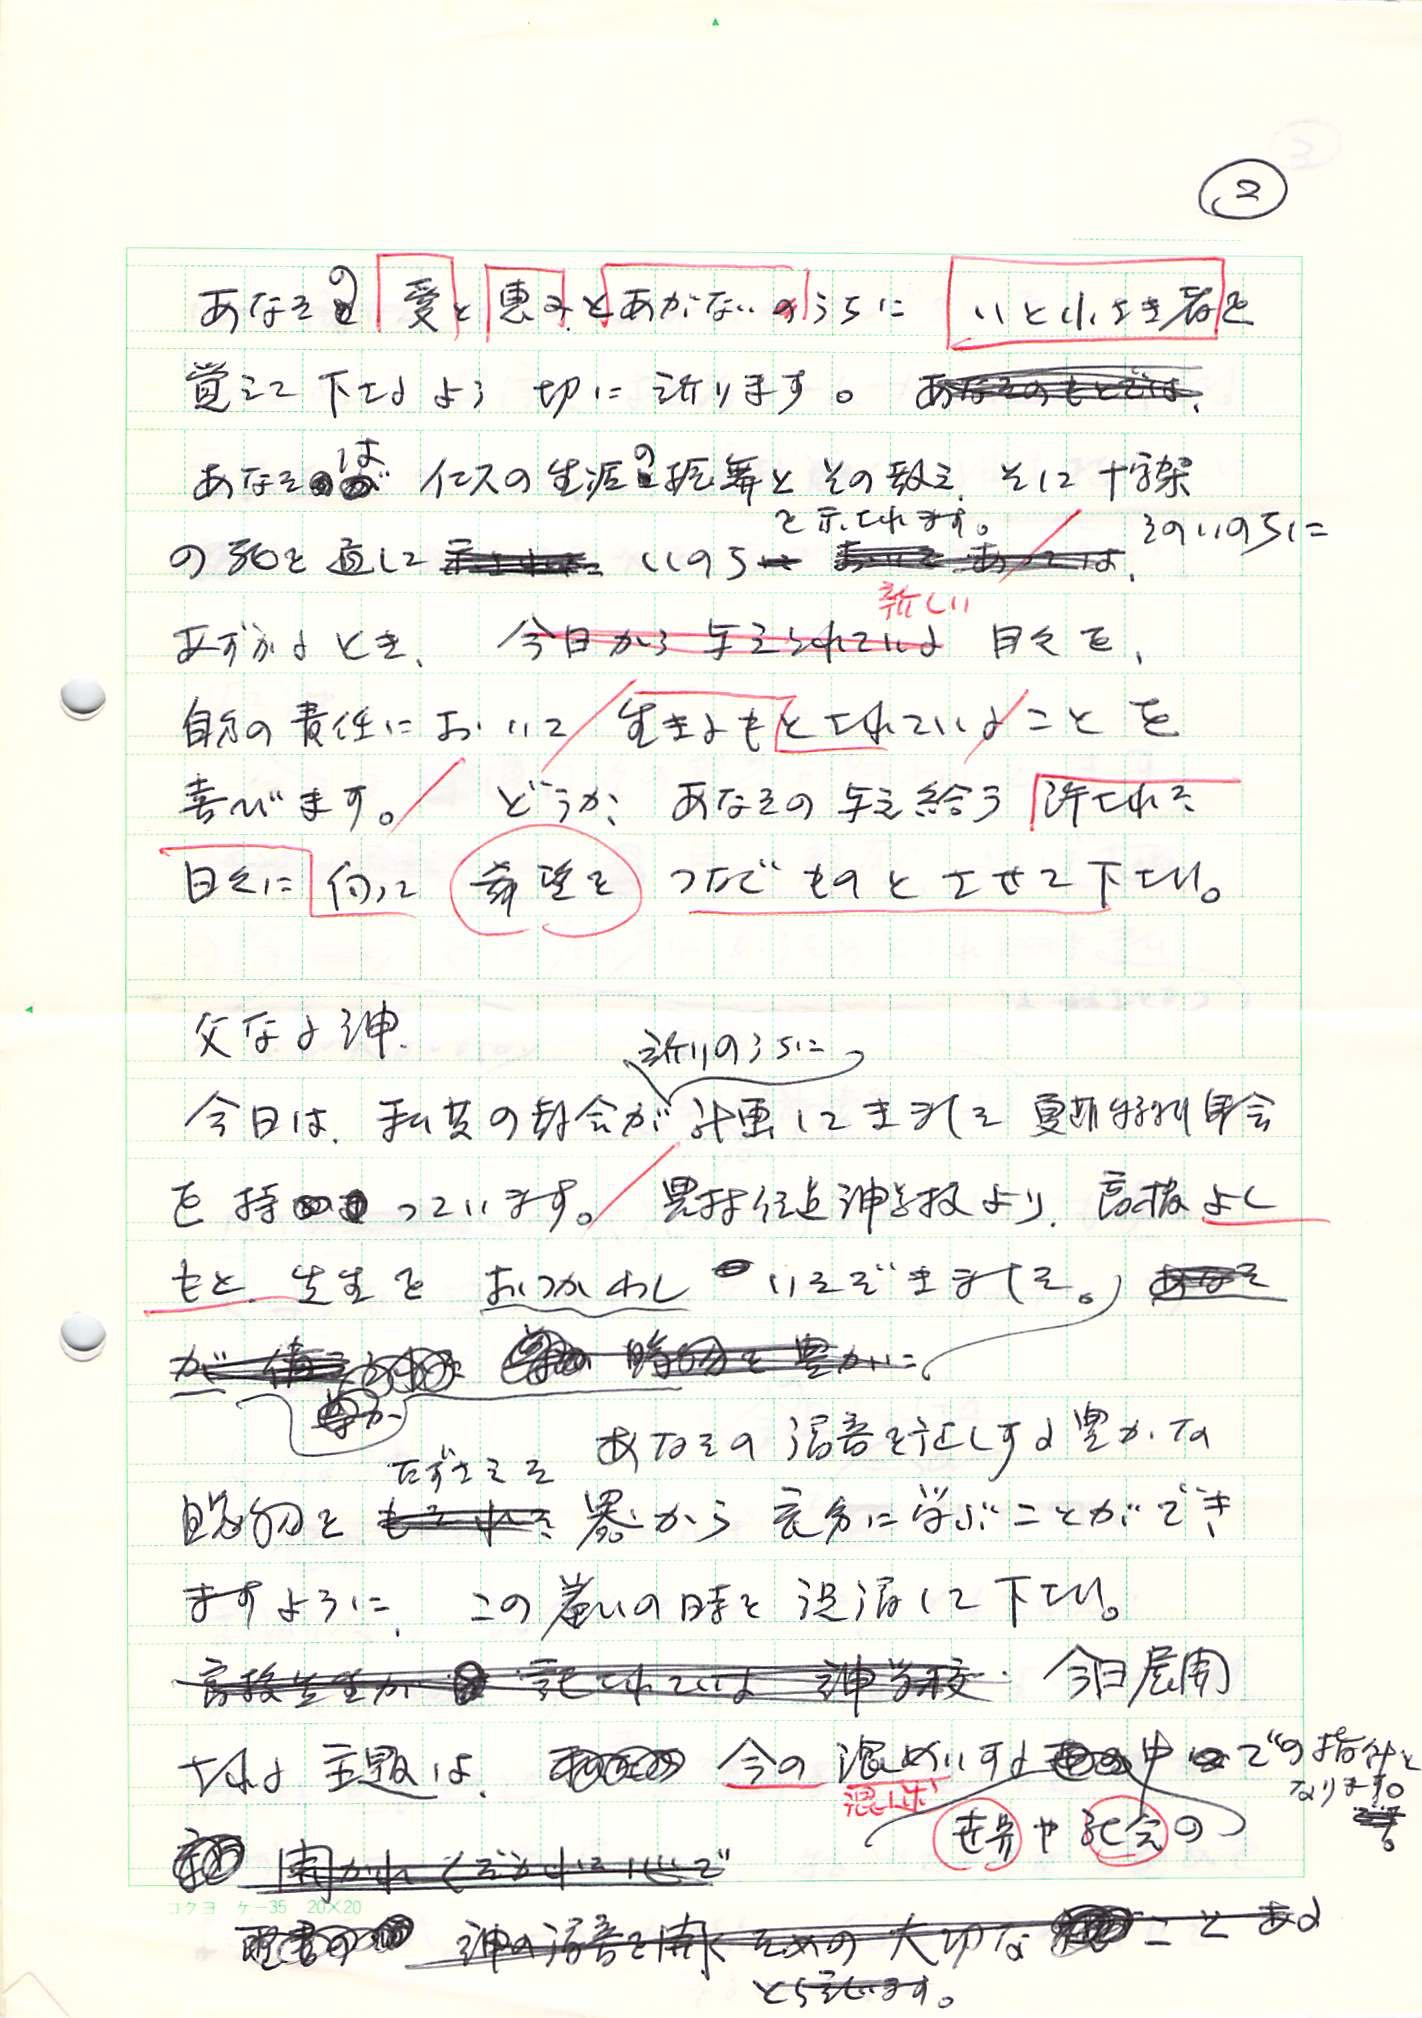 ②
あなたの 愛と恵みとあがないのうちに いと小さき者を
覚えて下さるよう 切に祈ります。 あなたのもとでは、
あなたは イエスの生涯の振舞とその教え、そして十字架
の死を通して いのちを示されます。 そのいのちに
新しい
あずかるとき、 今日から与えられている 日々を、
自分の責任において 生きるもとされていることを
喜びます。 どうか、 あなたの与え給う 許された
日々に 向って 希望を つなぐものとさせて下さい。
父なる神、
祈りのうちに
今日は、私共の教会が計画してきました 夏期特別集会
を持っています。 農村伝道神学校より、 高橋よし
もと 先生を おつかわし いただきました。 あなた
が 備え 時を豊かに
あなたの福音を証しする豊かな
たずさえた
賜物を 器から 充分に学ぶことができ
ますように、 この集いの時を 祝福して下さい。
高橋先生が 記されている 神学校 今日展開
される 主題は、 今の混迷する 中での指針と
なります。
混迷
世界や社会の
開かれ
神の福音を聞くための大切な ことである
とらえます。
コクヨ ケー35 20×20